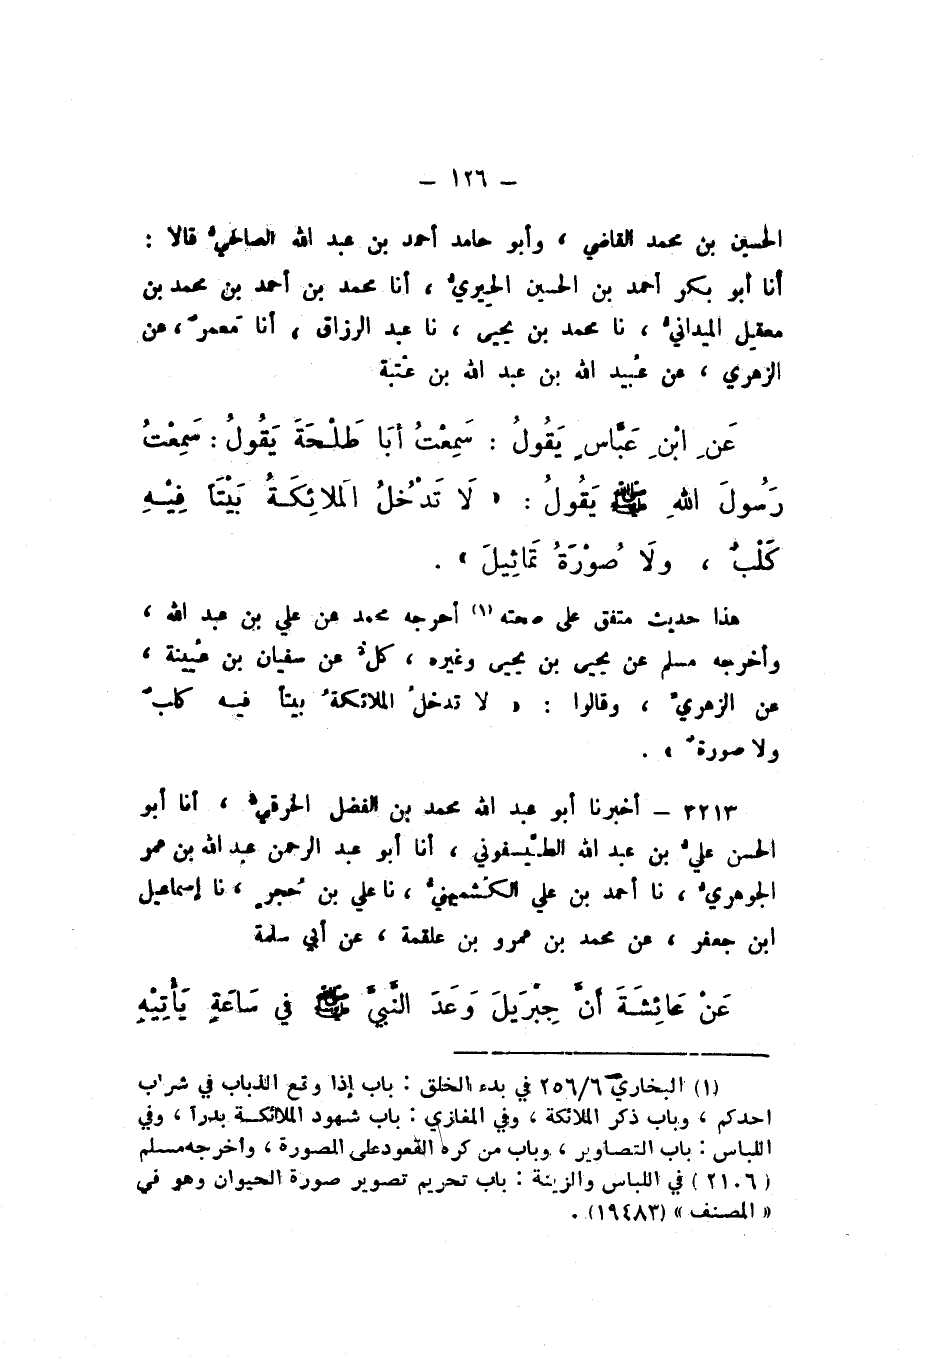 — ١٢٦ —
الحسين بن محمد القاضي ، وأبو حامد أحمد بن عبد الله الصالحيُّ قالا :
أنا أبو بكر أحمد بن الحسين الحِيريُّ ، أنا محمد بن أحمد بن محمد بن
معقيل الميدانيُّ ، نا محمد بن يحيى ، نا عبد الرزاق ، أنا مَعمرٌ ، عن
الزهري ، عن عُبيد الله بن عبد الله بن عتْبة
عَنِ ابْنِ عَبَّاسٍ يَقُولُ : سَمِعْتُ أَبَا طَلْحَةَ يَقُولُ : سَمِعْتُ
رَسُولَ اللهِ ﷺ يَقُولُ : « لَا تَدْخُلُ المَلائِكَةُ بَيْتَاً فِيْهِ
كَلْبٌ ، ولَا صُوْرَةُ تَمَاثِيلَ » .
هذا حديث متفق على صحته (١) أخرجه محمد عن علي بن عبد الله ،
وأخرجه مسلم عن يحيى بن يحيى وغيره ، كلٌّ عن سفيان بن عُيينة ،
عن الزهريِّ ، وقالوا : « لا تدخلُ الملائكةُ بيتاً فيه كلبٌ
ولا صورةٌ » .
٣٢١٣ — أخبرنا أبو عبد الله محمد بن الفضل الخرقيُّ ، أنا أبو
الحسن عليُّ بن عبد الله الطَّيْسفوني ، أنا أبو عبد الرحمن عبد الله بن عمر
الجوهريُّ ، نا أحمد بن علي الكُشميهنيُّ ، نا علي بن حُجرٍ ، نا إسماعيل
ابن جعفر ، عن محمد بن عمرو بن علقمة ، عن أبي سلمة
عَنْ عَائِشَةَ أَنَّ جِبْرَيلَ وَعَدَ النَّبِيَّ ﷺ في سَاعَةٍ يَأْتِيْهِ
(١) البخاري ٢٥٦/٦ في بدء الخلق : باب إذا وقع الذباب في شراب
احدكم ، وباب ذكر الملائكة ، وفي المغازي : باب شهود الملائكة بدراً ، وفي
اللباس : باب التصاوير ، وباب من كره القعود على الصورة ، وأخرجه مسلم
(٢١٠٦) في اللباس والزينة : باب تحريم تصوير صورة الحيوان وهو في
« المصنف » (١٩٤٨٣) .